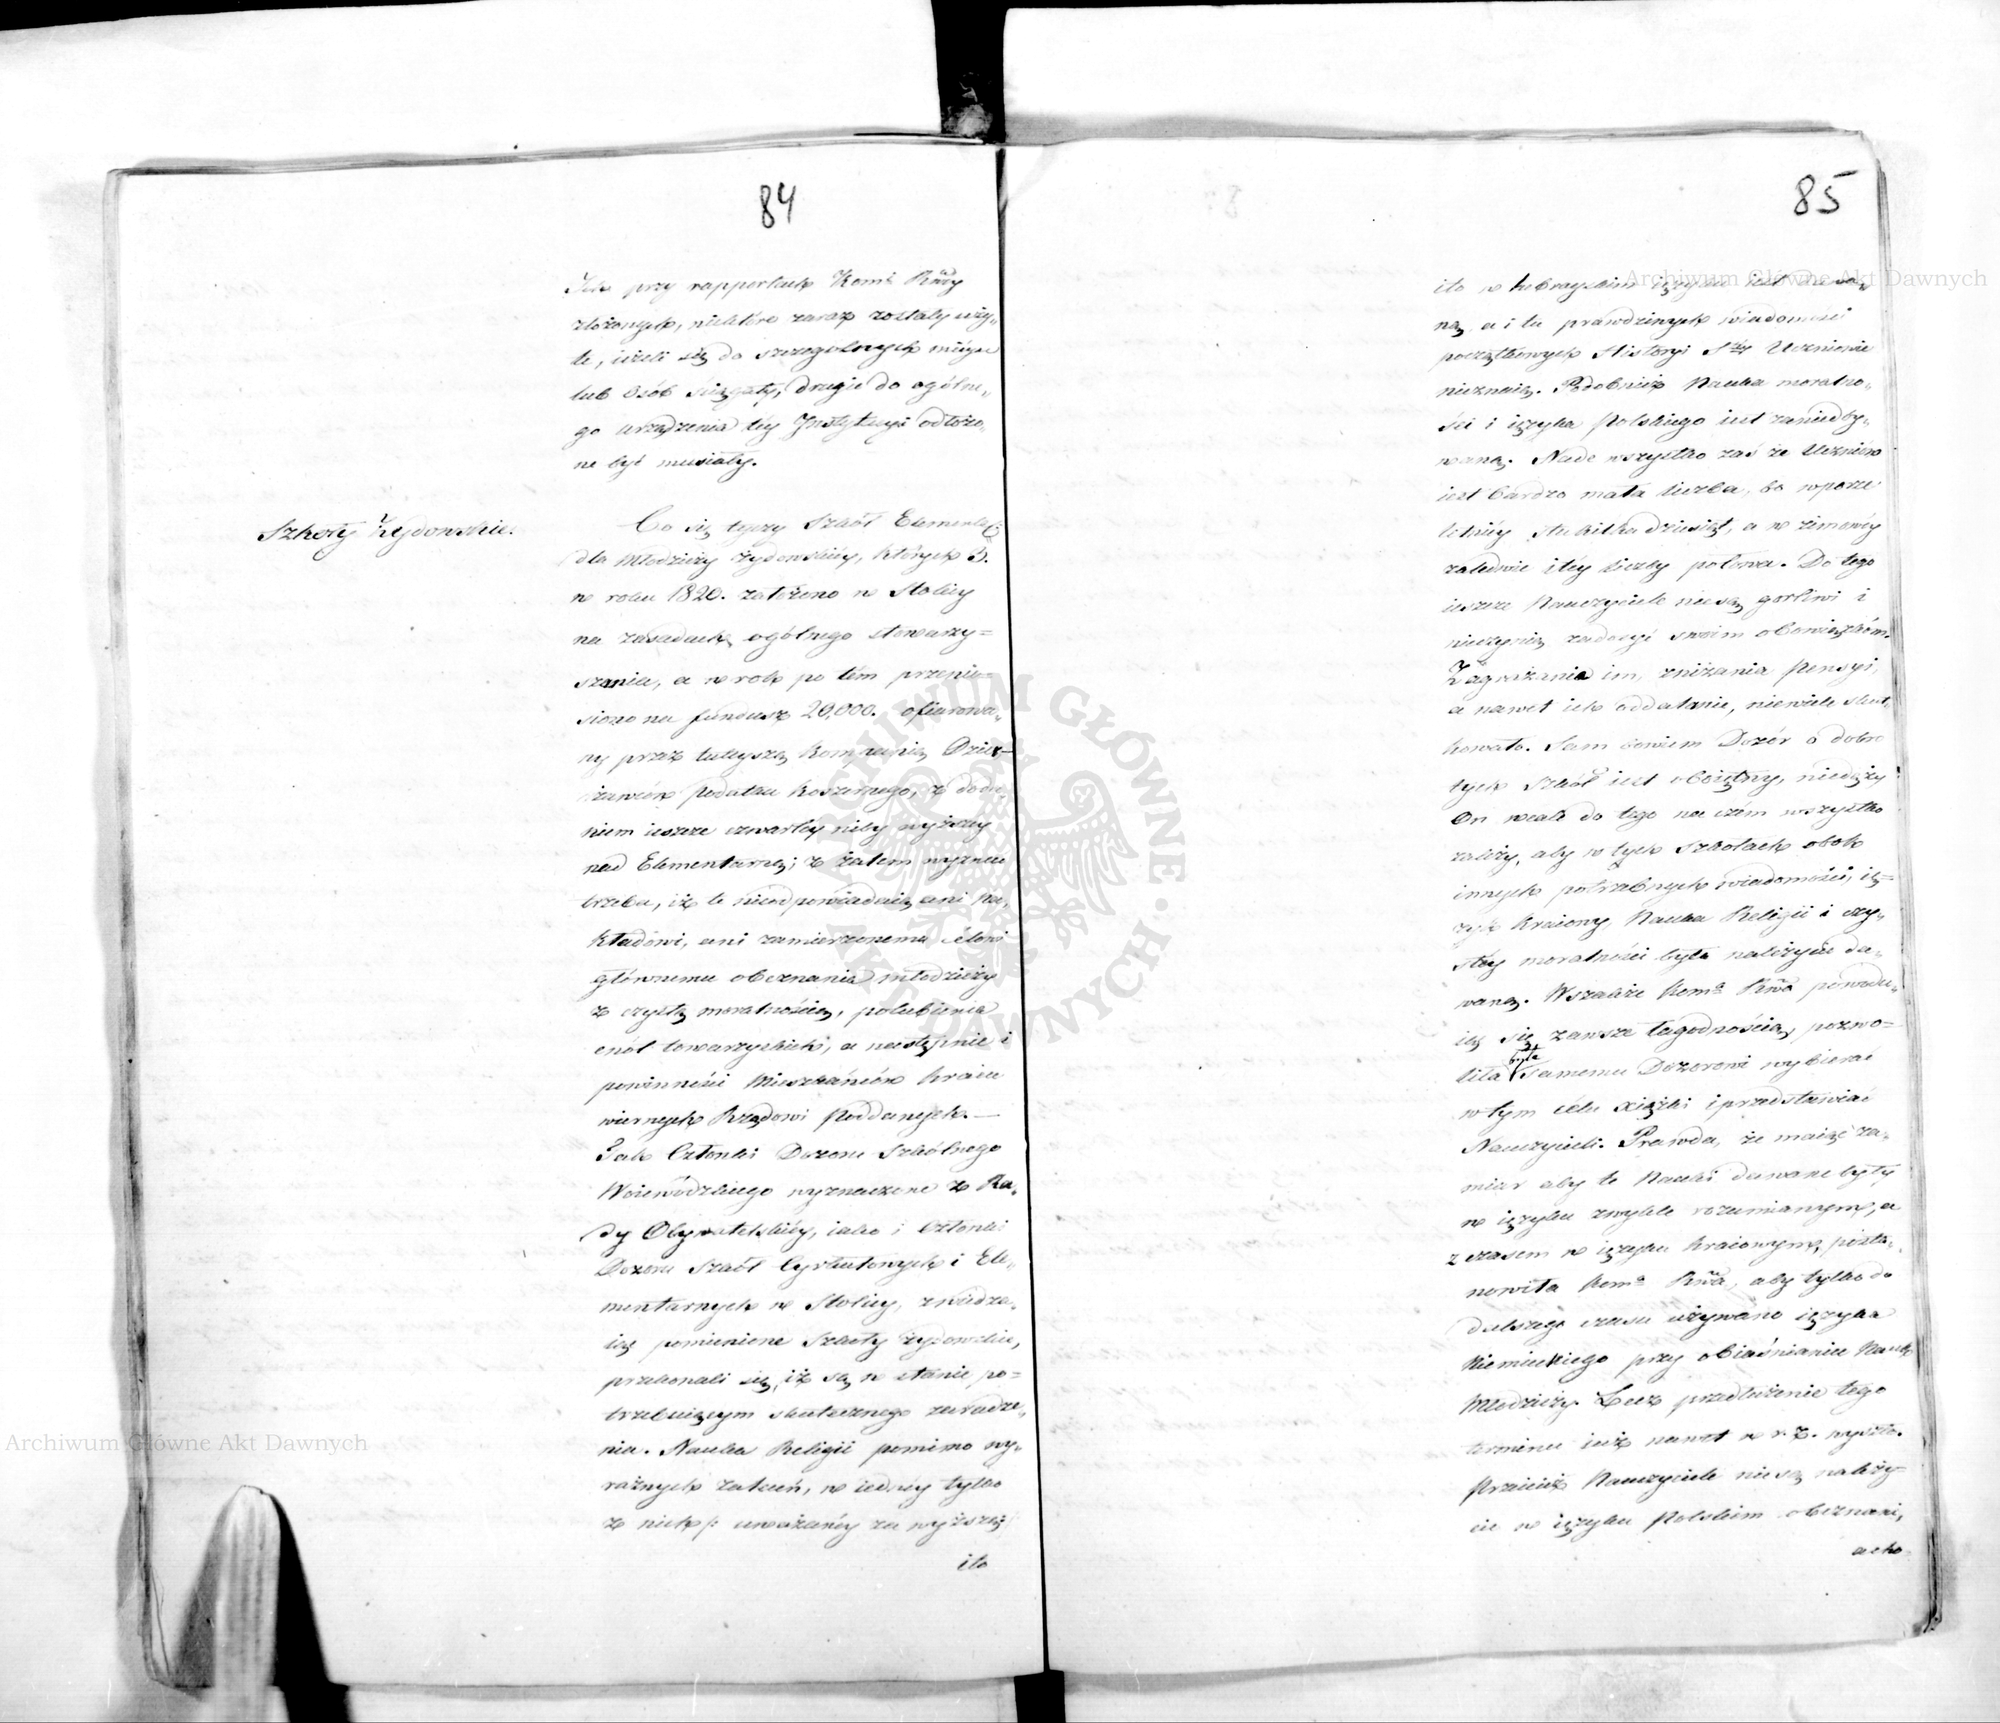 84
Ich przy rapportach Komi Rząy
złożonych, niektóre zaraz zostały uży„
te, ieżeli się do szczegolnych mieysc
lub osób ściągały, drugie do ogólne„
go urządzenia téy Instytucyi odłożo„
ne być musiały.
Szkoły Żydowskie.
Co się tyczy Szkół Elementar:
dla Młodzieży żydowskiéy, których 3.
w roku 1820. założono w Stolicy
na zasadach ogólnego stowarzy=
szenia, a w rok po tém przenie=
siono na fundusz 20,000. ofiarowa„
ny przez tuteyszą Kompanią Dzier=
żawców podatku koszernego, z doda„
niem ieszcze czwartéy niby wyższéy
nad Elementarną; z żalem wyznać
trzeba, iż te nieodpowiadaią ani na„
kładowi, ani zamierzonemu célowi
głównemu obeznania młodzieży
z czystą moralnością, polubienia
cnót towarzyskich, a następnie i
powinności Mieszkańców kraiu
wiernych Rządowi Poddanych. —
Jak Członki Dozoru Szkólnego
Woiewódzkiego wyznaczone z Ra„
dy Obywatelskiéy, iako i Członki
Dozoru Szkół Cyrkułowych i Ele„
mentarnych w Stolicy, zwiedza„
iąc pomienione Szkoły żydowskie,
przekonali się, iż są w stanie po=
trzebuiącym skutecznego zaradze„
nia. Nauka Religii pomimo wy„
raźnych zaleceń, w iednéy tylko
z nich /: uważanéy za wyższą
i to
85
i to w hebrayskim ięzyku iest dawa„
ną, a i tu prawdziwych wiadomości
początkowych Historyi Stéy Uczniowie
nieznaią. Podobnież Nauka moralno„
ści i ięzyka Polskiego iest zaniedby„
waną. Nade wszystko zaś że Uczniów
iest bardzo mała liczba, bo w porze
letniéy stukilkadziesiąt, a w zimowéy
zaledwie i téy liczby połowa. Do tego
ieszcze Nauczyciele nie są gorliwi i
nieczynią zadosyć swoim obowiązkóm.
Zagrażania im, zniżania Pensyi,
a nawet ich oddalanie, niewiele skut„
kowało. Sam bowiem Dozór o dobro
tych Szkół iest oboiętny, niedąży
On wcale do tego na czém wszystko
zależy, aby w tych szkołach obok
innych potrzebnych wiadomości, ię=
zyk kraiowy, Nauka Religii i czy„
stéy moralności była należycie da„
waną. Wszakże Koma Rwa powodu„
iąc się zawsze łagodnością, pozwo=
liła była samemu Dozorowi wybierać
w tym célu xiążki i przedstawiać
Nauczycieli. Prawda, że maiąc za„
miar aby te Nauki dawane były
w ięzyku zwykle rozumianym, a
z czasem w ięzyku kraiowym, posta„
nowiła Koma Rwa, aby tylko do
dalszego czasu używano ięzyka
Niemieckiego przy obiaśnianiu Nauk
Młodzieży. Lecz przedłużenie tego
terminu iuż nawet w r. z. wyszło.
Przecież Nauczyciele nie są należy=
cie w ięzyku Polskim obeznani,
a cho
Archiwum Główne Akt Dawnych
Archiwum Główne Akt Dawnych
ARCHIWUM GŁÓWNE AKT DAWNYCH